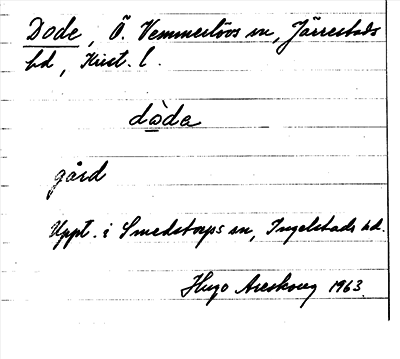 Dode, Ö. Vemmerlövs sn, Järrestads
hd, Krist. l.
dòda
gård
Uppt. i Smedstorps sn, Ingelstads hd.
Hugo Areskoug 1963